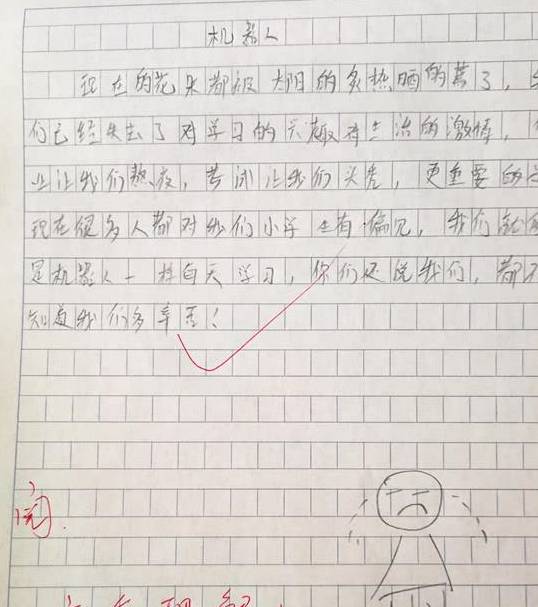 机器人
现在的花朵都被太阳的炙热晒的蔫了，
们已经失去了对学习的兴趣对生活的激情，
业让我们熬夜，考试让我们头秃，更重要的
现在很多人都对我们小学生有偏见，我们就
是机器人一样白天学习，你们还说我们，都不
知道我们多辛苦！